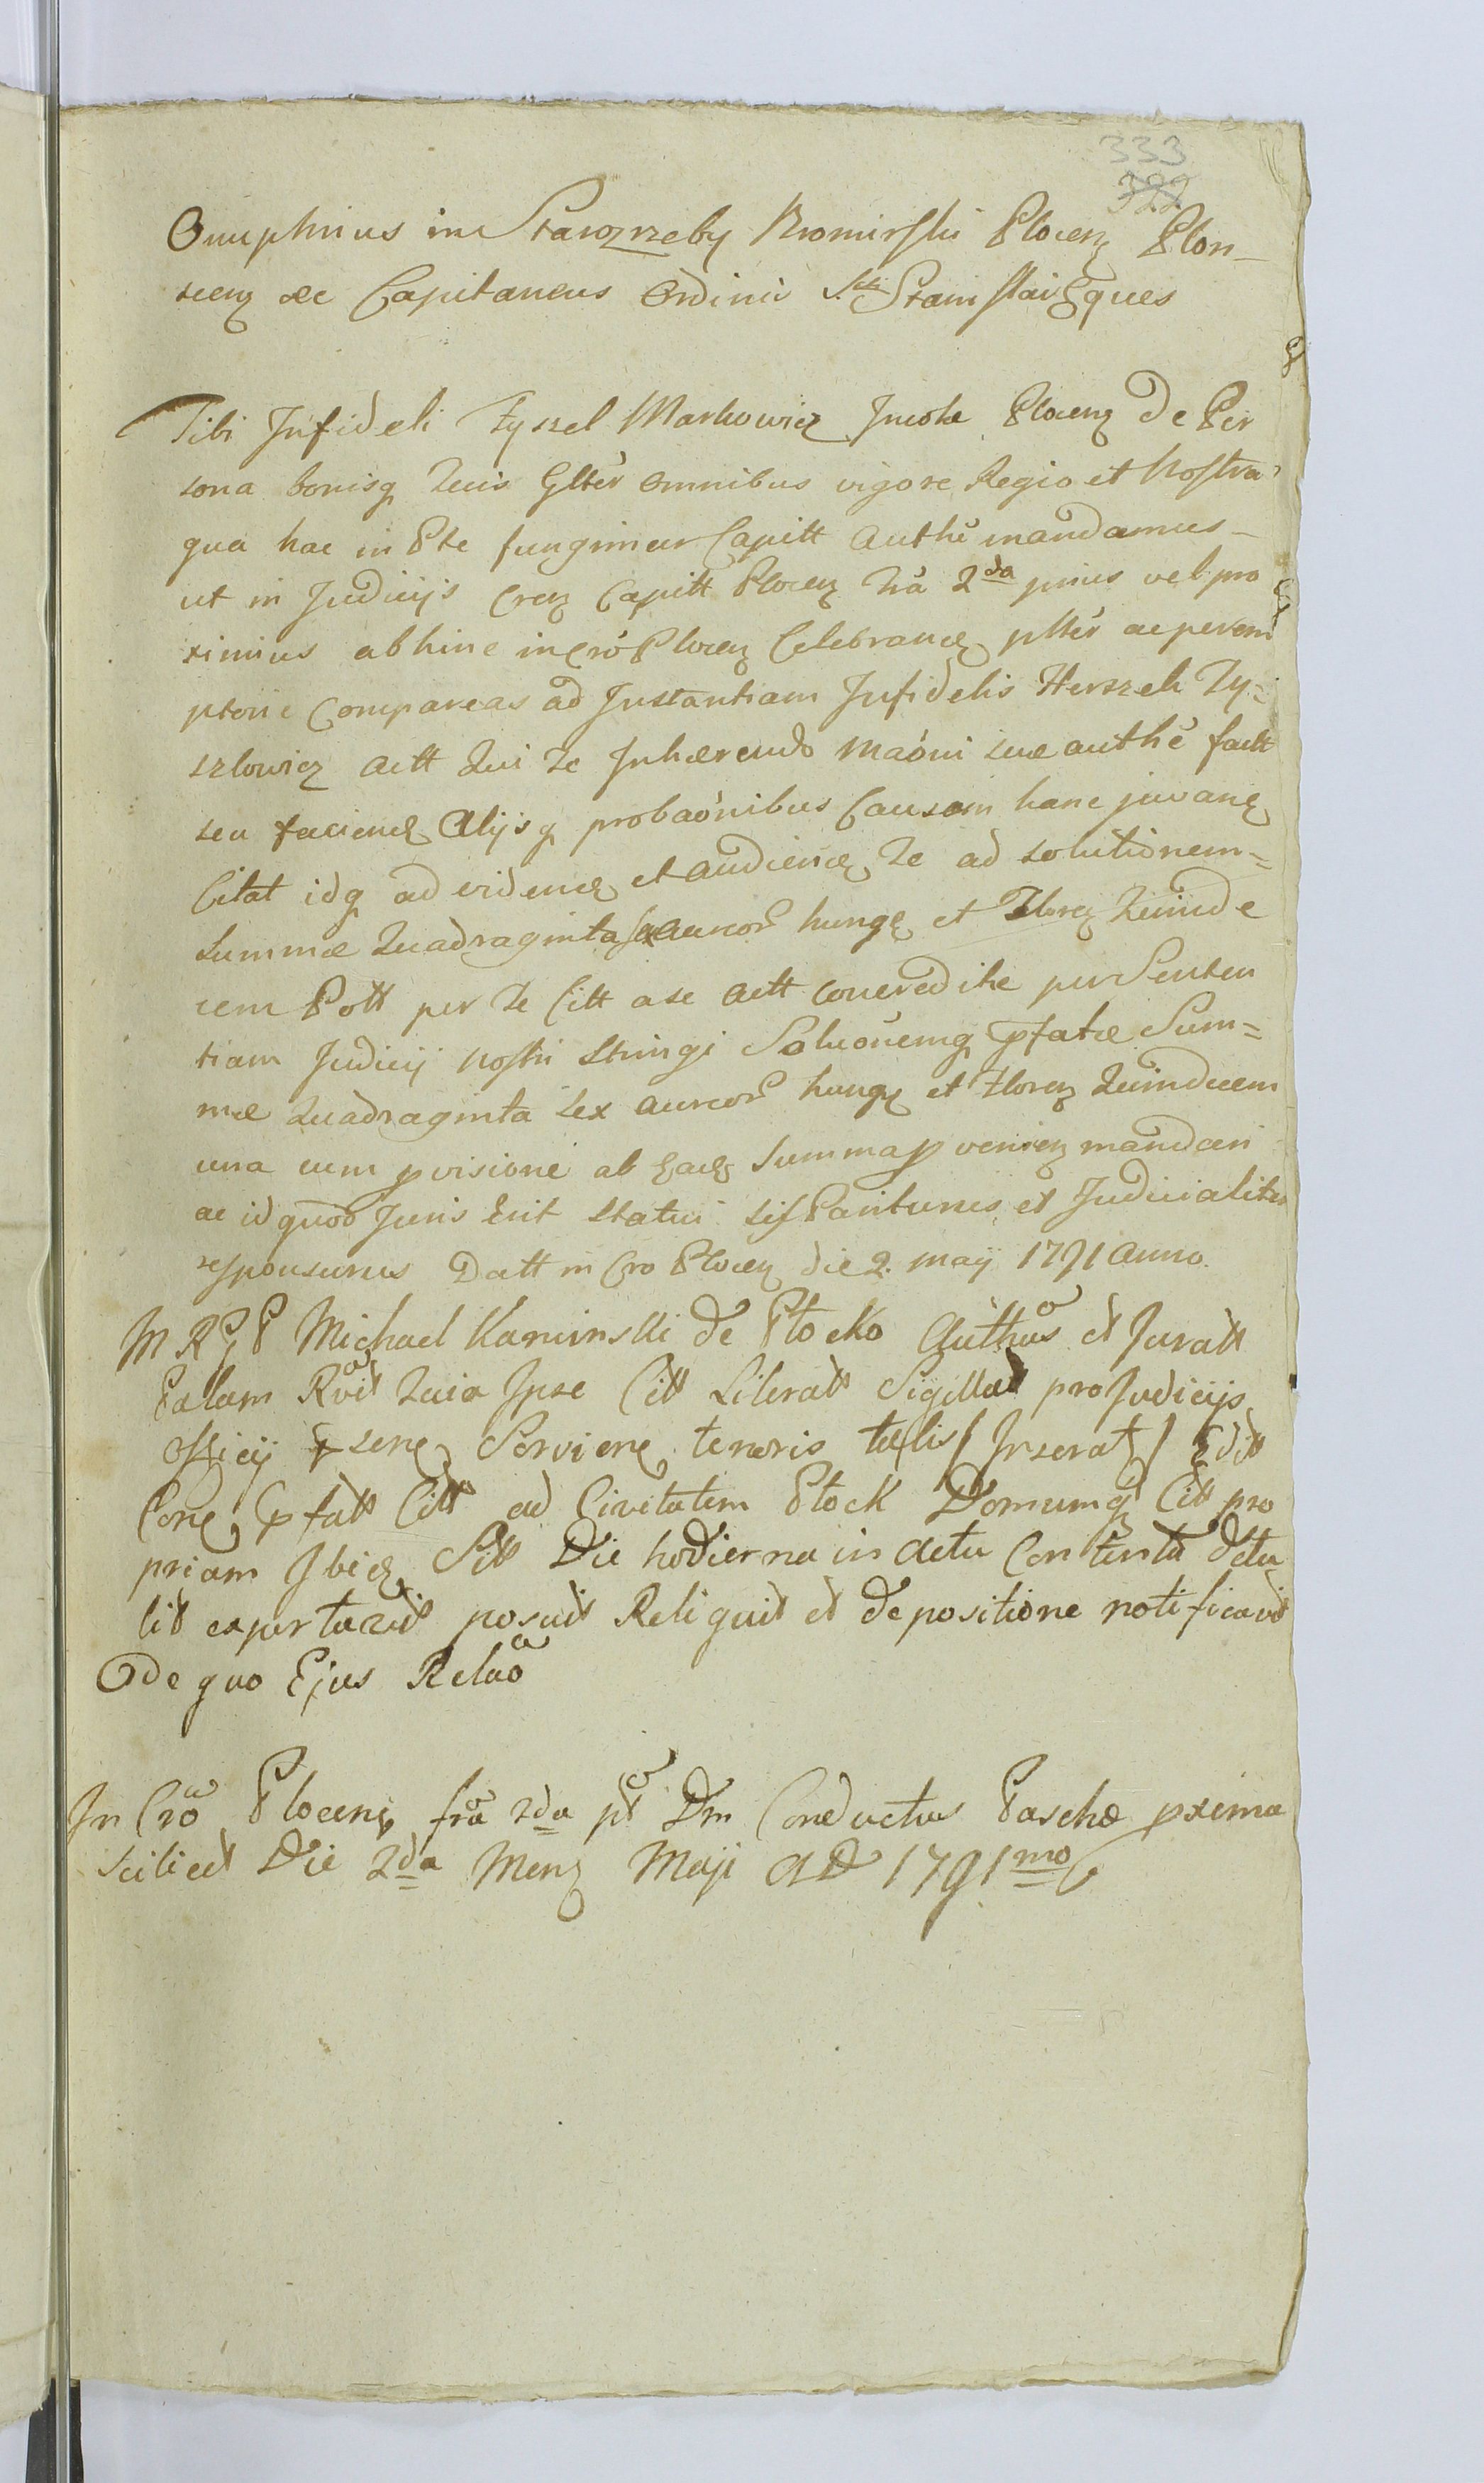 333
322
Onuphrius in Starozreby Bromirski Plocen Plon-
scen &c Capitaneus Ordinis Sti Stanislai Eques
Tibi Infideli Fyszel Markowicz Incolæ Plocen de Per
sona bonisq Tuis Glter omnibus vigore Regio et Nostra
qua hac in Pte fungimur Capitt Authe mandamus
ut in Judicijs Cren Capitt Plocen fra 2da prius vel pro
ximius abhinc in Cro Plocen Celebran ptter ac perem
ptorie Compareas ad Instantiam Infidelis Herszek Fy=
szlowicz Actt Qui Te Inhærendo maoni suæ authe factt
seu facien Alijsq probaonibus Causam hanc juvan
Citat idq ad viden et audien Te ad solutionem=
Summæ Quadraginta sex aureor hung et Floren Quinde
cem Poll per Te Citt a se Actt concreditæ per Senten
tiam Judicij nostri stringi Soluonemq pfatæ Sum=
mæ Quadraginta sex aureor hung et Floren Quindecem
una cum pvisione ab Ead Summa pvenien mandari
ac id quod Juris Erit statui sis Pariturus et Judicialiter
responsurus Datt in Cro Plocen die 2. maij 1791 Anno.
M R G P Michael Kaminski de Płocko Authus et Juratt
Palam Rvit Quia Ipse Citt Literatt Sigillatt pro Judicijs
Officij psen Servien tenoris talis / Inserat / Edit
Con pfatt Citt ad Civitatem Płock Domumq Citt pro
priam Ibiq Sitt Die hodierna in Actu Contenta detu
lit exportavit posuit Reliquit et de positione notificavit
De quo Ejus Relao
In Cro Plocen fra 2da pt Dm Conductus Paschæ pxima
Scilicet Die 2da Men Maji A D 1791mo